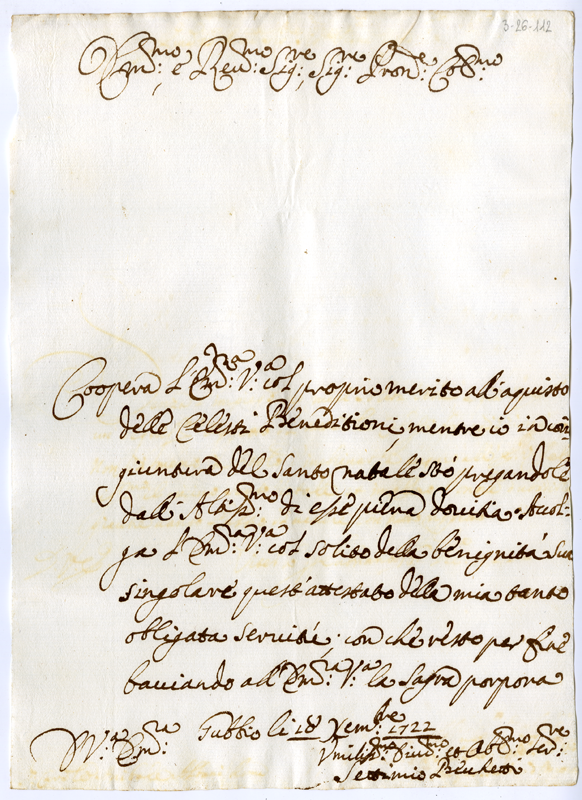 3-26-112
Em:mo e Reu:mo Sig:re, Sig:re Pron:e Col:mo
Coopera l'Em:za V:a col proprio merito all'aquisto
delle Celesti Beneditioni, mentre io in con-
giuntura del Santo natale stò pregandole
dall'Altis:mo di esse piena douitia. Acol-
ga l'Em:za V:a col solito della benignità sua
singolare quest'attestato della mia tanto
obligata seruitù; con che resto per fine
bacciando all'Em:za V:a la Sagra porpora
Gubbio li 18 Xem:bre 1722
D V:a Em:za
Vmiliss:mo Diu:mo et Obl:mo Ser:re
Settimio